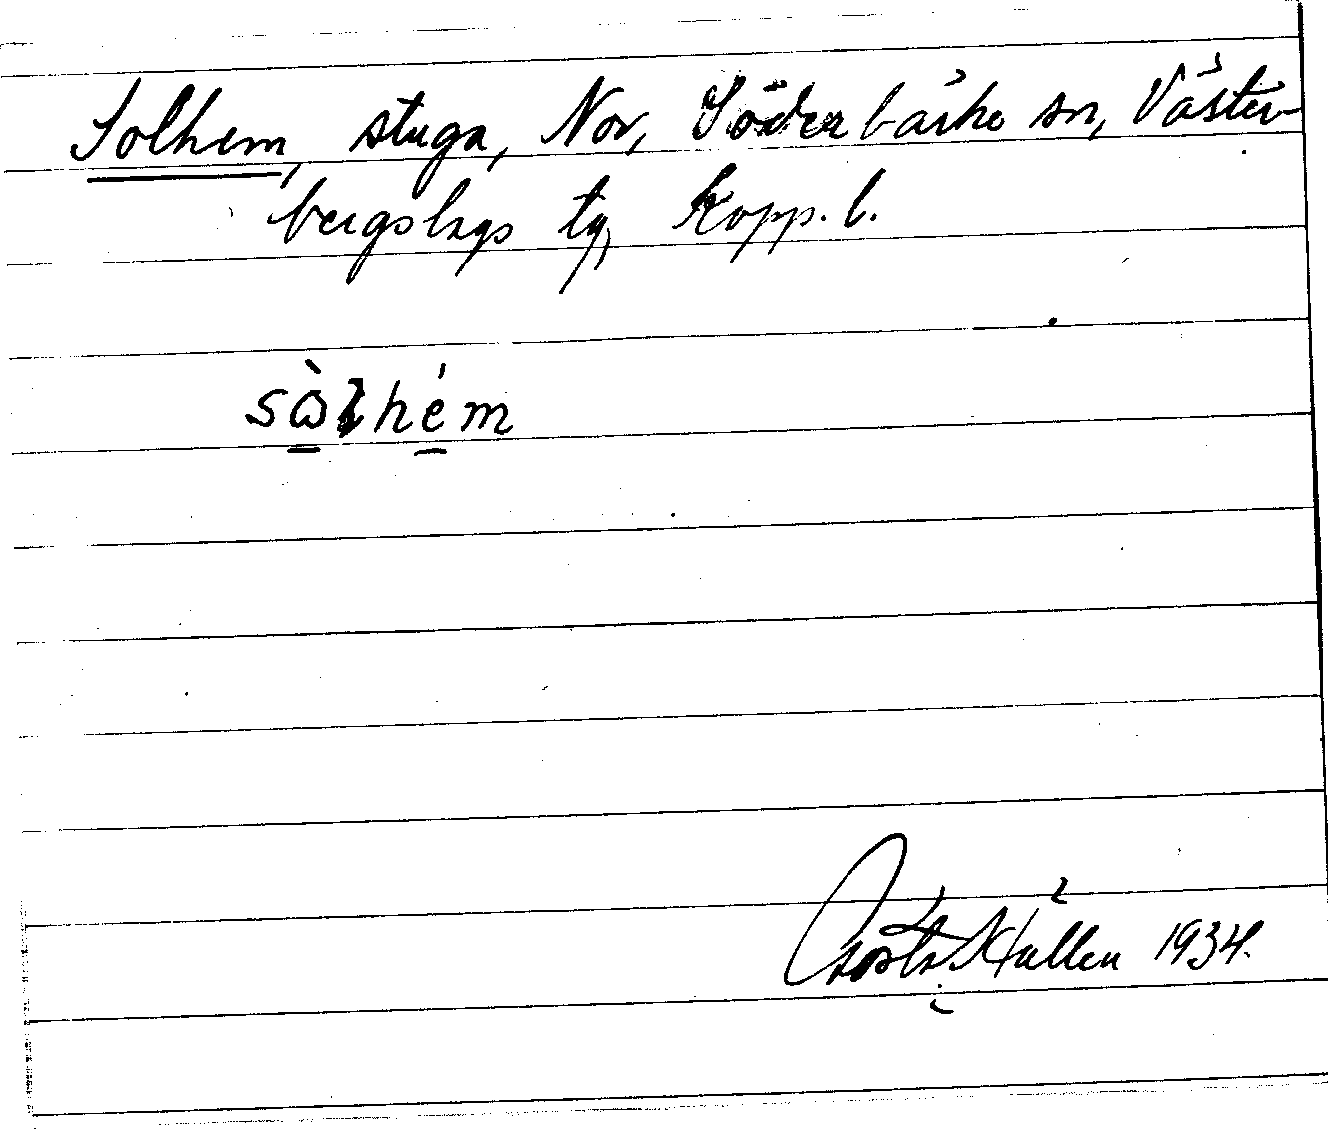 Solhem, stuga, Nor, Söderbärke sn, Väster-
bergslags tg, Kopp. l.
sὼlhém
Gösta Hallén 1934.